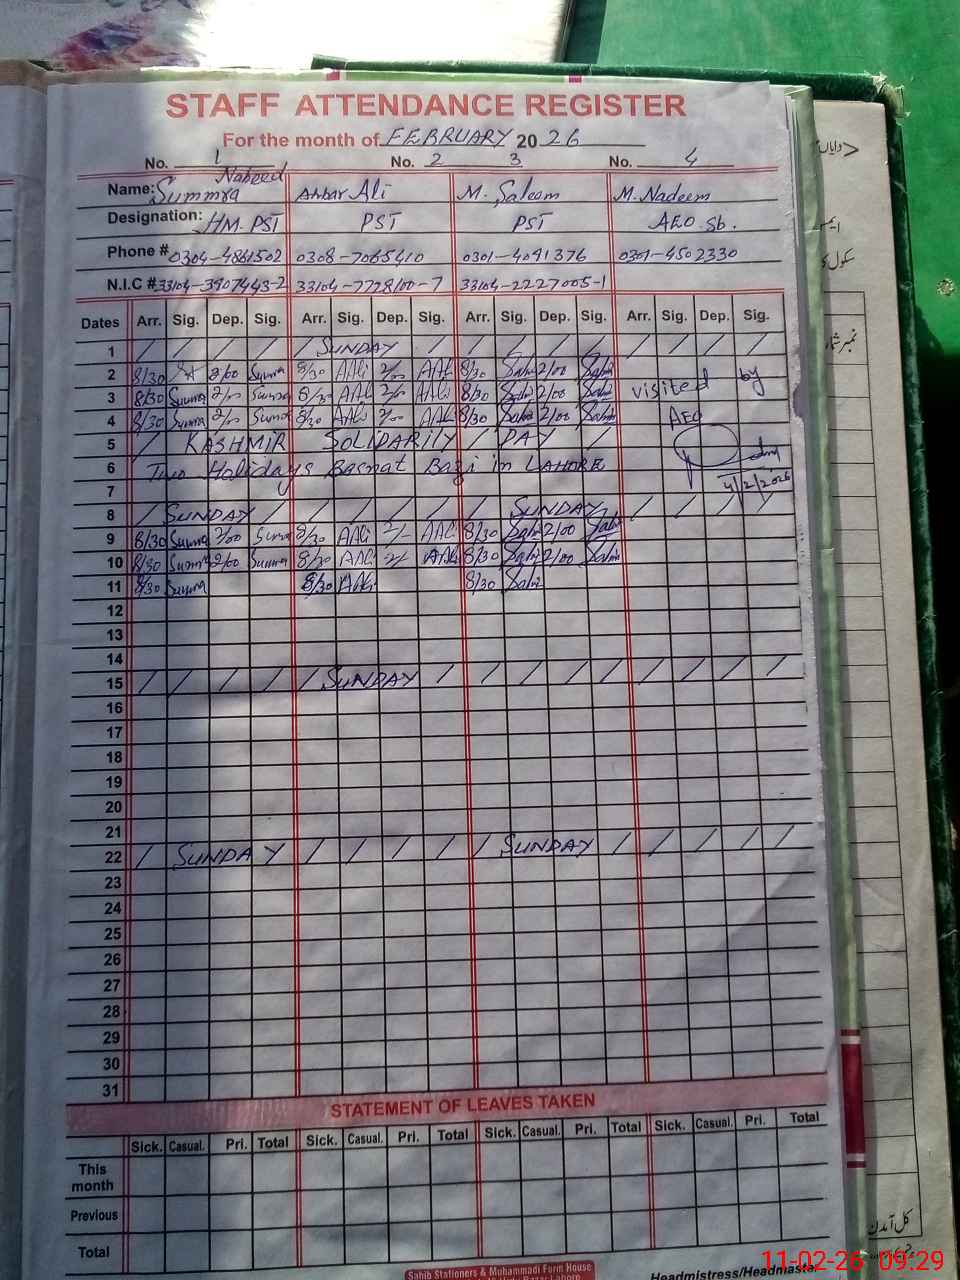 STAFF ATTENDANCE REGISTER
For the month of FEBRUARY 2026
No. 1 No. 2 3 No. 4
Name: Summra Nabeed Akbar Ali M. Saleem M. Nadeem
Designation: HM. PST PST PST AEO. Sb.
Phone # 0304-4861502 0308-7065410 0301-4091376 0301-4502330
N.I.C # 33104-3907443-2 33104-7778100-7 33104-2227005-1
Dates Arr. Sig. Dep. Sig. Arr. Sig. Dep. Sig. Arr. Sig. Dep. Sig. Arr. Sig. Dep. Sig.
1 / / / / / SUNDAY / / / / / / / /
2 8/30 2/00 Sumra 8/30 AAli 2/00 AAli 8/30 Salm 2/00 Salm
3 8/30 Sumra 2/00 Sumra 8/30 AAli 2/00 AAli 8/30 Salm 2/00 Salm visited by
4 8/30 Sumra 2/00 Sumra 8/30 AAli 2/00 AAli 8/30 Salm 2/00 Salm AEO
5 / KASHMIR SOLIDARILY / DAY /
6 Two Holidays Basnat Bazi in LAHORE
7 4/2/2026
8 / SUNDAY / / / / / / SUNDAY / / / / /
9 8/30 Sumra 2/00 Sumra 8/30 AAli 2/- AAli 8/30 Salm 2/00 Salm
10 8/30 Sumra 2/00 Sumra 8/30 AAli 2/ AAli 8/30 Salm 2/00 Salm
11 8/30 Sumra 8/30 AAli 8/30 Salm
12
13
14
15 / / / / SUNDAY / / / / / / / / /
16
17
18
19
20
21
22 / SUNDAY / / / / / SUNDAY / / / / /
23
24
25
26
27
28
29
30
31
STATEMENT OF LEAVES TAKEN
Sick. Casual. Pri. Total Sick. Casual. Pri. Total Sick. Casual. Pri. Total Sick. Casual. Pri. Total
This
month
Previous
Total
Sahib Stationers & Muhammadi Form House
Headmistress/Headmaster
کل آمدن
11-02-26 09:29